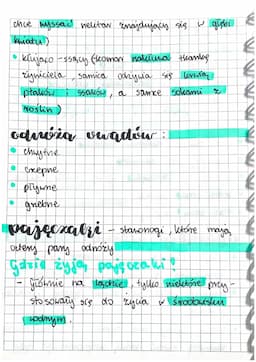 chce wyssać nektar znajdujący się w głębi
kwiatu)
kłująco-ssący (komar nakłuwa tkankę
żywiciela, samica odżywia się krwią
ptaków i ssaków, a samce sokami z
roślin)
odnóża owadów:
chwytne
czepne
pływne
grzebne
pajęczaki - stawonogi, które mają
cztery pary odnóży
Gdzie żyją pajęczaki?
- głównie na lądzie, tylko niektóre przy-
stosowały się do życia w środowisku
wodnym.